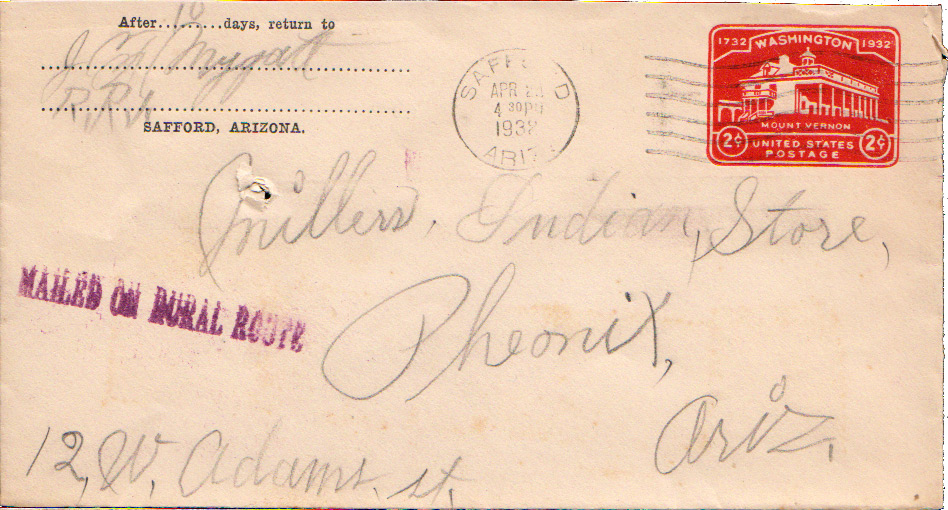 After 10 days, return to
J. Mygatt
R.R.1
SAFFORD, ARIZONA.
SAFFORD
APR
4 30PM
1932
ARIZ
1732 WASHINGTON 1932
MOUNT VERNON
2¢ UNITED STATES 2¢
POSTAGE
Millers, Indian, Store,
MAILED ON RURAL ROUTE
Pheonix,
Ariz.
12, W. Adams. st.